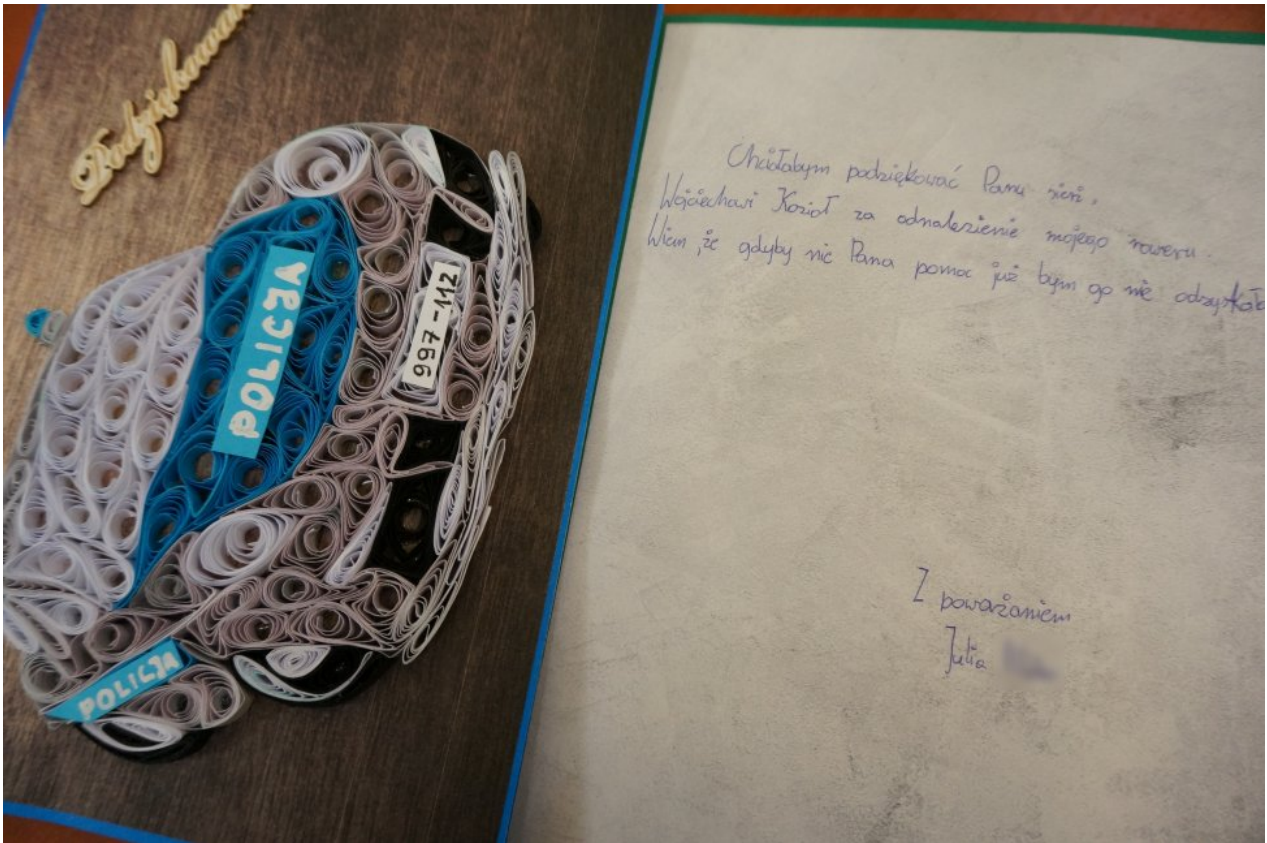 Podziękowan
POLICJA
997-112
POLICJA
Chciałabym podziękować Panu sierż.
Wojciechowi Kozioł za odnalezienie mojego roweru.
Wiem, że gdyby nie Pana pomoc już bym go nie odzyskała
Z poważaniem
Julia